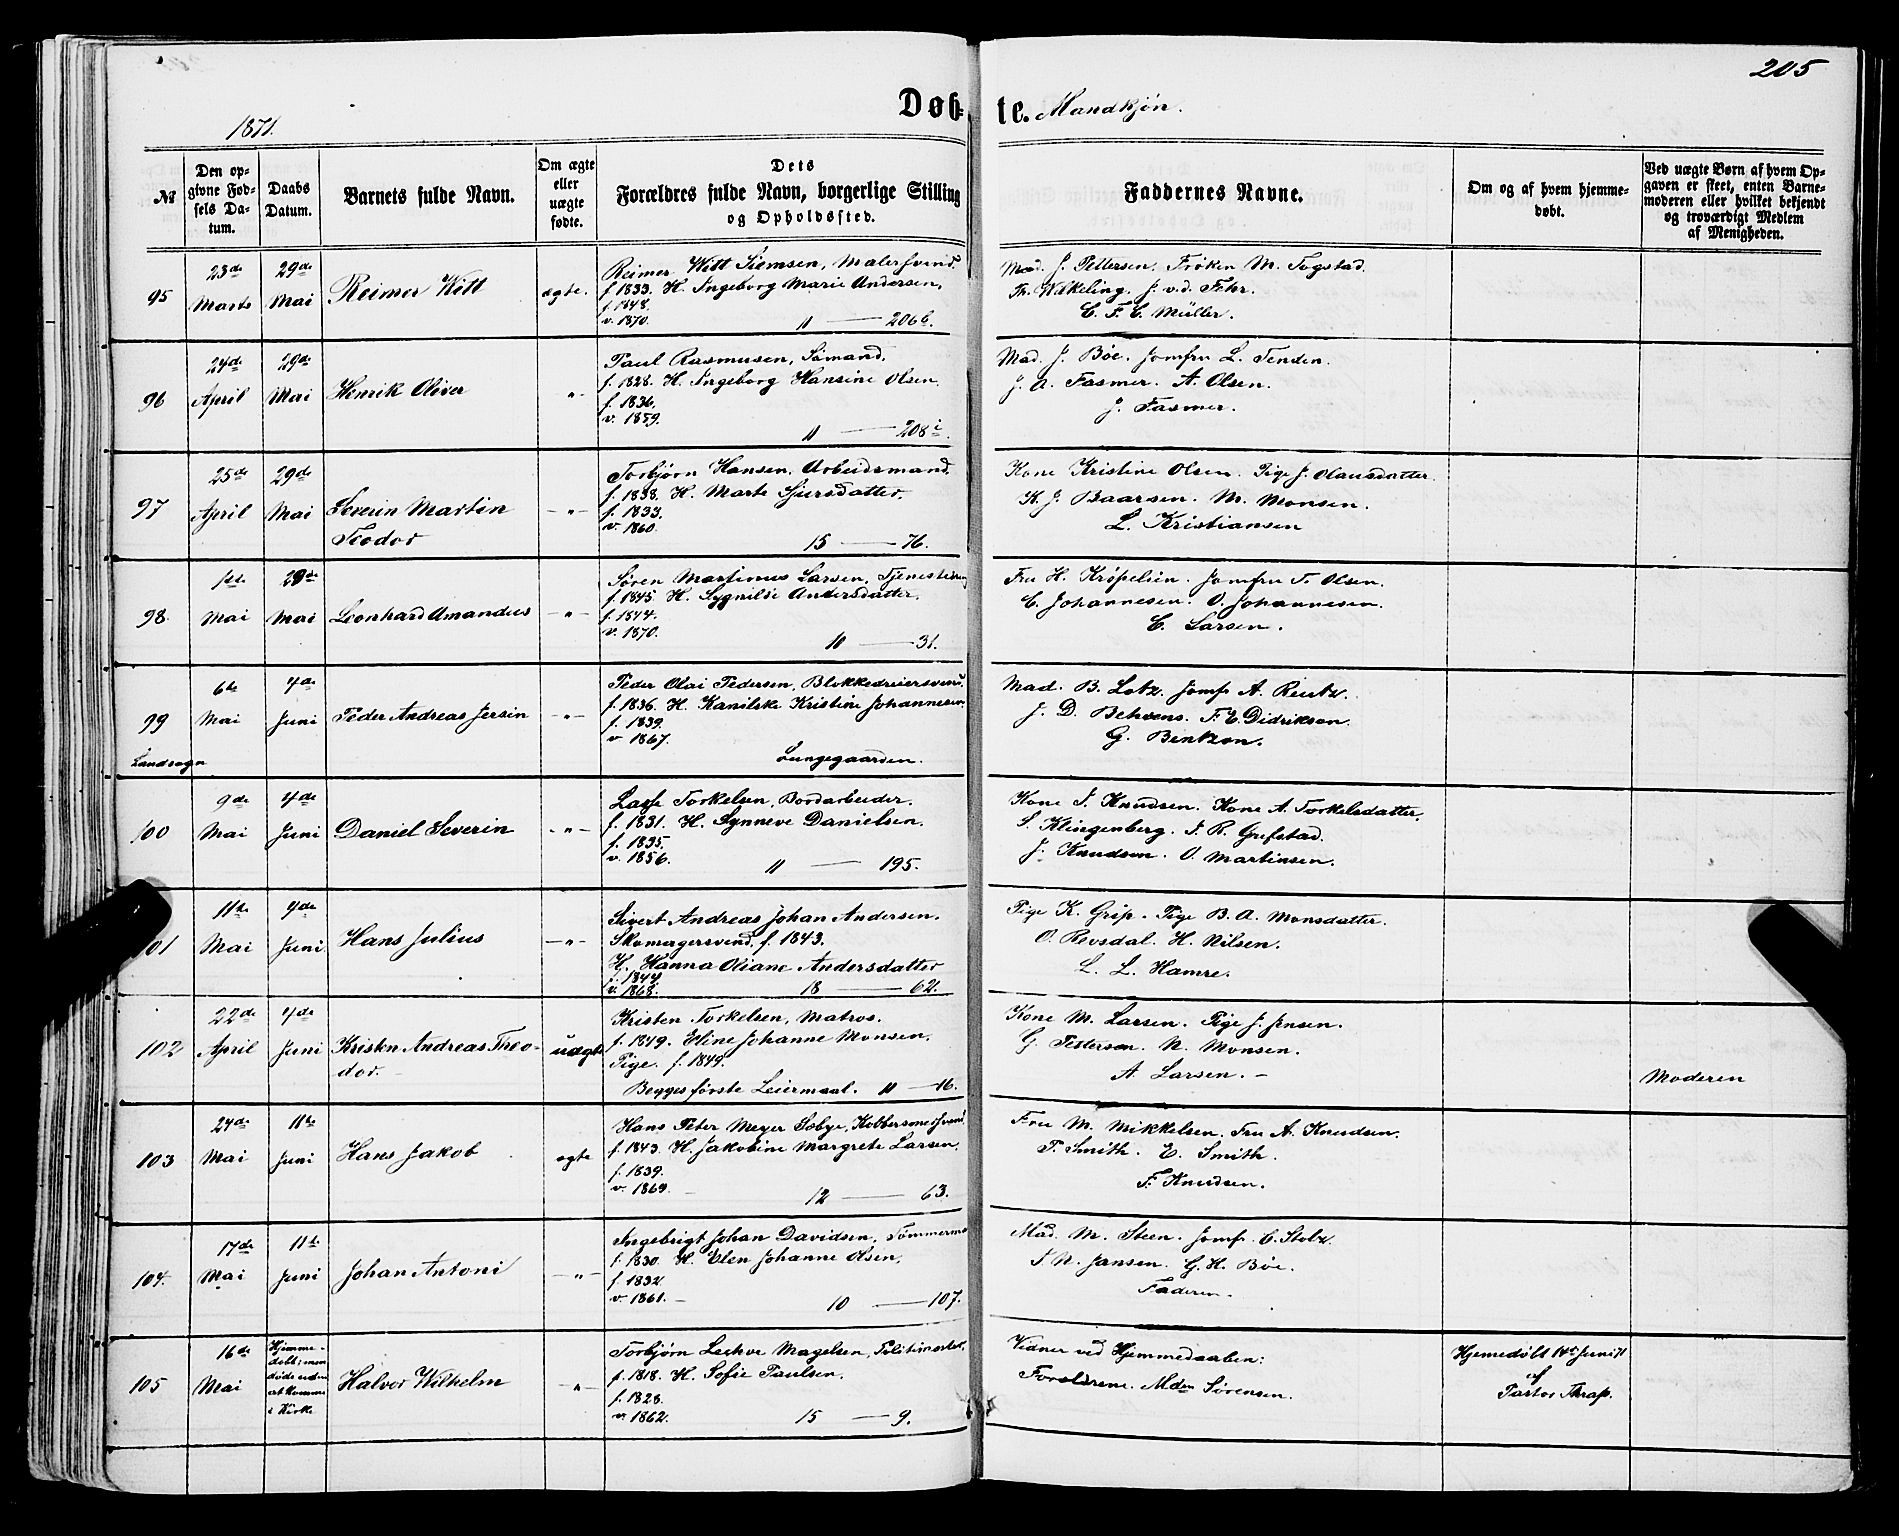 205
Døb-
te. Mandkjøn.
1871.
№
Den op-
givne Fød-
sels Da-
tum.
Daabs
Datum.
Barnets fulde Navn.
Om ægte
eller
uægte
fødte.
Dets
Forældres fulde Navn, borgerlige Stilling
og Opholdssted.
Faddernes Navne.
Om og af hvem hjemme-
døbt.
Ved uægte Børn af hvem Op-
gaven er skeet, enten Barne-
moderen eller hvilket bekjendt
og troværdigt Medlem
af Menigheden.
95
23de
Marts
29de
Mai
Reimer Witt
ægte.
Reimer Witt Siemsen, Malersvend.
f 1833. H. Ingeborg Marie Andersen,
f. 1848.
v. 1870.
11 — 206b.
Mad. J. Pettersen. Frøken M. Fogstad.
Th. Wakeling. J. v. d. Fehr.
C. F. C. Müller.
96
24de
April
29de
Mai
Henrik Oliver
"
Paul Rasmusen, Sømand.
f. 1828. H. Ingeborg Hansine Olsen.
f. 1836.
v. 1859.
11 — 208i.
Mad. J. Bøe. Jomfru L. Tenden.
J. A. Fasmer. A. Olsen.
J. Fasmer.
97
25de
April
29de
Mai
Severin Martin
Teodor
— " —
Torbjørn Hansen, Arbeidsmand.
f. 1838. H. Marte Sjursdatter.
f. 1833.
v. 1860.
15 — 76.
Kone Kristine Olsen. Pige J. Olausdatter.
K. J. Baarsen. M. Monsen.
L. Kristiansen
98.
1ste
Mai
29de
Mai
Leonhard Amandus
— " —
Søren Martinus Larsen,
f. 1845. H. Sygnilde Andersdatter.
f. 1844.
v. 1870.
10 — 31.
Fru H. Krøpelien. Jomfru T. Olsen.
C. Johannesen. O. Johannesen.
C. Larsen.
99
Landsogn
6te
Mai
4de
Juni
Peder Andreas Jersin
— " —
Peder Olai Pedersen, Blokkedreiersvend.
f. 1836. H. Kanilske Kristine Johannesen.
f. 1839.
v. 1867.
Lungegaarden.
Mad. B. Lotz. Jomf. A. Reutz.
J. D. Behrens. F. E. Didriksen.
G. Bentzon.
100
9de
Mai
4de
Juni
Daniel Severin
— " —
Lasse Torkelsen, Bordarbeider.
f. 1831. H. Synneve Danielsen.
f. 1835.
v. 1856.
11 — 195.
Kone T. Knudsen. Kone A. Torkelsdatter.
S. Klingenberg. J. R. Grefstad.
J. Knudsen. O. Martinsen.
101
11te
Mai
4de
Juni
Hans Julius
— " —
Sivert Andreas Johan Andersen.
Skomagersvend, f. 1843.
H. Hanna Oliane Andersdatter
f. 1844.
v. 1868.
18 — 62.
Pige K. Grip. Pige B. A. Monsdatter.
O. Revsdal. H. Nilsen.
L. L. Hamre.
102
22de
April
4de
Juni
Kristen Andreas Theo-
dor. -
uægte
Kristen Torkelsen, Matros.
f. 1849. Eline Johanne Monsen,
Pige. f. 1849.
Begges første Leiermaal. 11 — 16.
Kone M. Larsen. Pige J. Jensen.
G. Pettersen. N. Monsen.
A. Larsen. -
Moderen
103
24de
Mai
11te
Juni
Hans Jakob
ægte
Hans Peter Meyer Sobye, Kobbersmedsvend.
f. 1843. H. Jakobine Margrete Larsen.
f. 1839.
v. 1869.
12 — 63.
Fru M. Mikkelsen. Fru A. Knudsen.
P. Smith. E. Smith.
F. Knudsen.
104.
17de
Mai
11te
Juni
Johan Antoni
— " —
Ingebrigt Johan Davidsen, Tømmermd
f. 1830. H. Elen Johanne Olsen.
f. 1832.
v. 1861. -
10 — 107.
Mad. M. Steen. Jomf. C. Stolz.
J. N. Jansen. G. H. Bøe.
Faderen.
105
16de
Mai
Hjemme-
døbt; men
døde uden
at komme
i Kirke
Halvor Wilhelm
— " —
Torbjørn Lechve Magelsen,
f. 1818. H. Sofie Paulsen.
f. 1828.
v. 1862.
15 — 9.
Vidner ved Hjemmedaaben:
Forældrene. Mdm Sørensen.
Hjemedøbt Juni 71
af
Pastor Thrap.